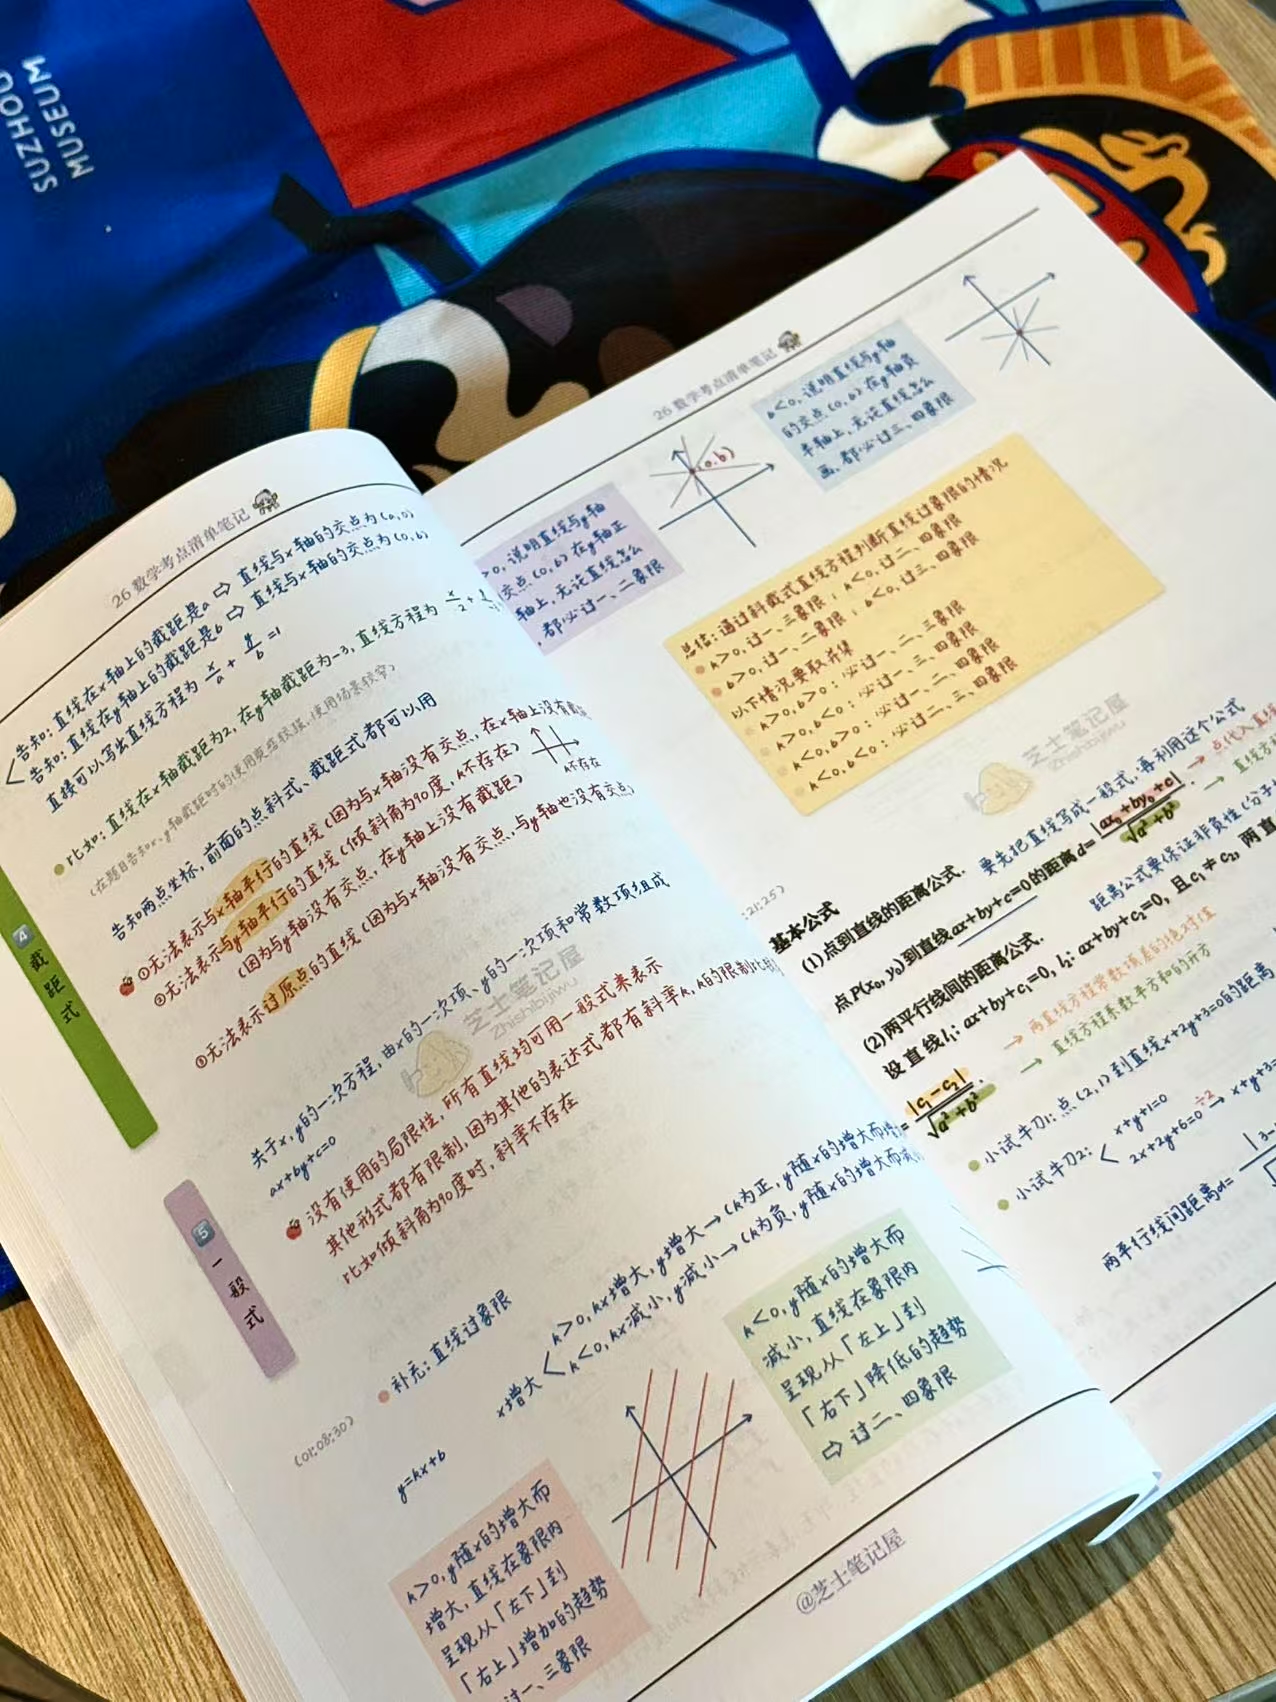 SUZHOU
MUSEUM
26 数学考点清单笔记
告知:直线在x轴上的截距是a ⇨ 直线与x轴的交点为(a,0)
告知:直线在y轴上的截距是b ⇨ 直线与x轴的交点为(0,b)
直接可以写出直线方程为 x/a + y/b =1
比如:直线在x轴截距为2,在y轴截距为-3,直线方程为 x/2 +
(在题目告知x、y轴截距时的使用更若较强,使用场景较窄)
告知两点坐标,前面的点斜式、截距式都可以用
①无法表示与x轴平行的直线(因为与x轴没有交点,在x轴上没有截
②无法表示与y轴平行的直线(倾斜角为90度,k不存在)
(因为与y轴没有交点,在y轴上没有截距)
k不存在
③无法表示过原点的直线(因为与x轴没有交点,与y轴也没有交点)
4 截距式
关于x,y的一次方程,由x的一次项、y的一次项和常数项组成
ax+by+c=0
没有使用的局限性,所有直线均可用一般式来表示
其他形式都有限制,因为其他的表达式都有斜率k,k的限制比
比如倾斜角为90度时,斜率不存在
5 一般式
芝士笔记屋
Zhishibijiwu
补充:直线过象限
(01:08:30)
x增大
k>0,kx增大,y增大→(k为正,y随x的增大而增
k<0,kx减小,y减小→(k为负,y随x的增大而减
y=kx+b
k>0,y随x的增大而
增大,直线在象限内
呈现从「左下」到
「右上」增加的趋势
过一、三象限
k<0,y随x的增大而
减小,直线在象限内
呈现从「左上」到
「右下」降低的趋势
⇨ 过二、四象限
26 数学考点清单笔记
>0,说明直线与y轴
交点(0,b)在y轴正
轴上,无论直线怎么
都必过一、二象限
(0,b)
b<0,说明直线与y轴
的交点(0,b)在y轴负
半轴上,无论直线怎么
画,都必过三、四象限
总结:通过斜截式直线方程判断直线过象限的情况
k>0,过一、三象限;k<0,过二、四象限
b>0,过一、二象限;b<0,过三、四象限
以下情况要取并集
k>0,b>0:必过一、二、三象限
k>0,b<0:必过一、三、四象限
k<0,b>0:必过一、二、四象限
k<0,b<0:必过二、三、四象限
芝士笔记屋
Zhishibijiwu
:21:25)
基本公式
(1)点到直线的距离公式. 要先把直线写成一般式,再利用这个公式
点P(x₀,y₀)到直线ax+by+c=0的距离d= |ax₀+by₀+c|/√a²+b² → 点代入直线
→ 直线方
距离公式要保证非负性(分子
(2)两平行线间的距离公式.
设直线l₁:ax+by+c₁=0,l₂:ax+by+c₂=0,且c₁≠c₂,两直
= |c₁-c₂|/√a²+b².
→ 两直线方程常数项差的绝对值
→ 直线方程系数平方和的开方
小试牛刀1:点(2,1)到直线x+2y+3=0的距离
小试牛刀2:
x+y+1=0
2x+2y+6=0 ÷2→ x+y+3=
两平行线间距离d=
@芝士笔记屋